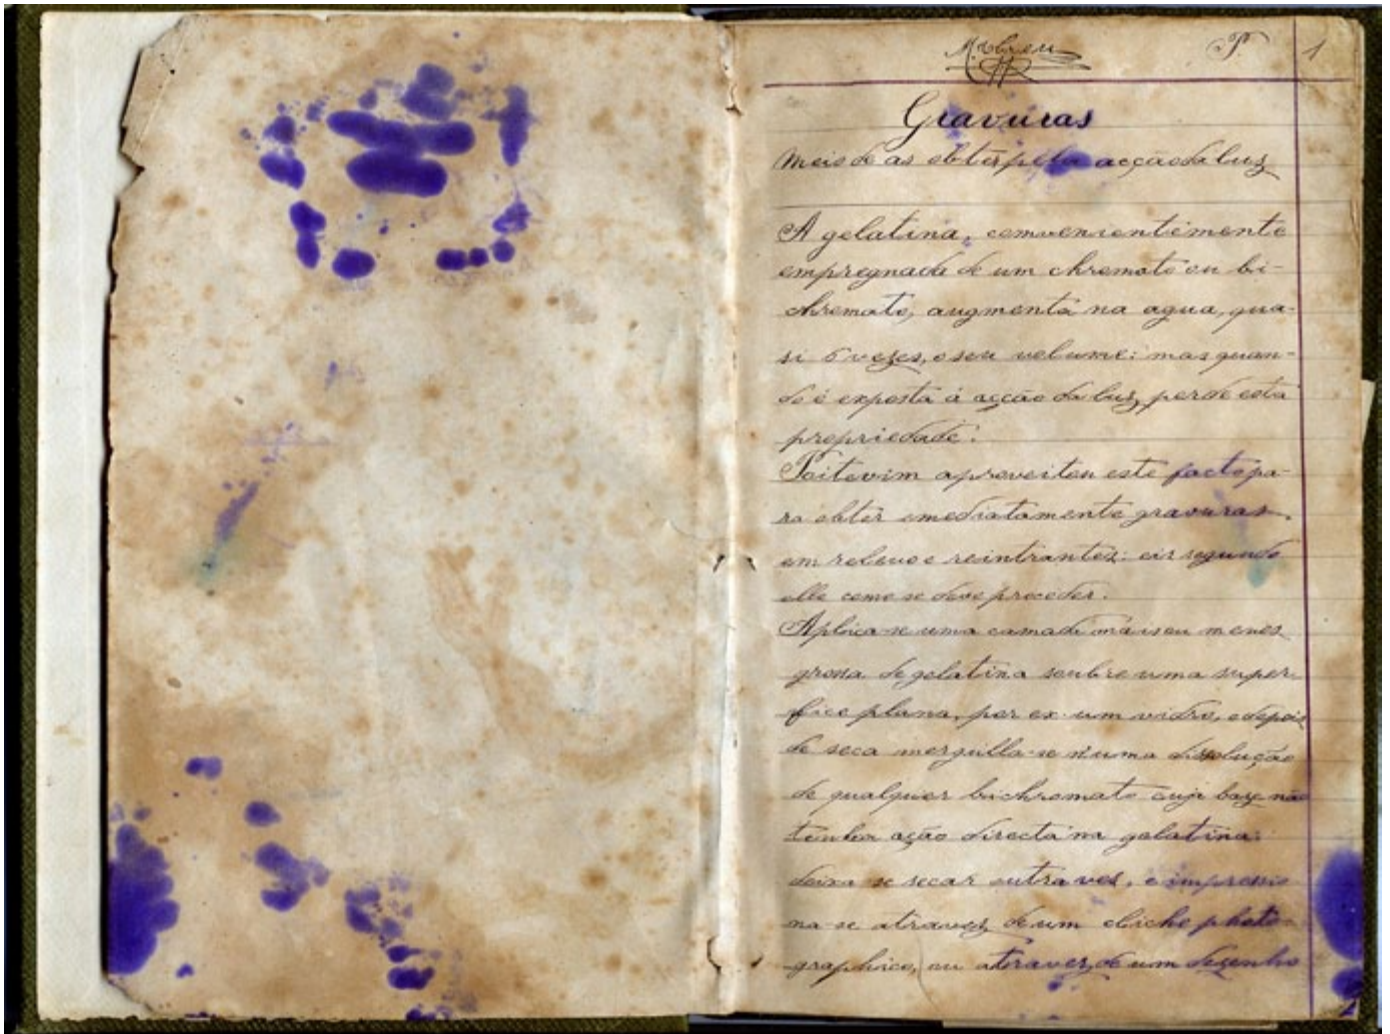 M. Abreu P. 1
Gravuras
Meio de as obter pela acção da luz
A gelatina, comvenientemente
empregnada de um chromato ou bi-
chromato, augmenta na agua, qua-
si 6 vezes, o seu volume: mas quan-
do é exposta á acção da luz, perde esta
propriedade.
Poitevim aproveitou este facto pa-
ra obter emediatamente gravuras
em relevo e reintrantes: eis segundo
elle como se deve proceder.
Aplica-se uma camada mais ou menos
grossa de gelatina soubre uma super-
ficie plana, por ex. um vidro, e depois
de seca mergulla-se n'uma dissolução
de qualquer bichromato cuja baze não
tenha ação directa na gelatina:
deixa-se secar outra vez, e impressio
na-se atravez de um cliche photo-
graphico, ou atravez, de um dezenho